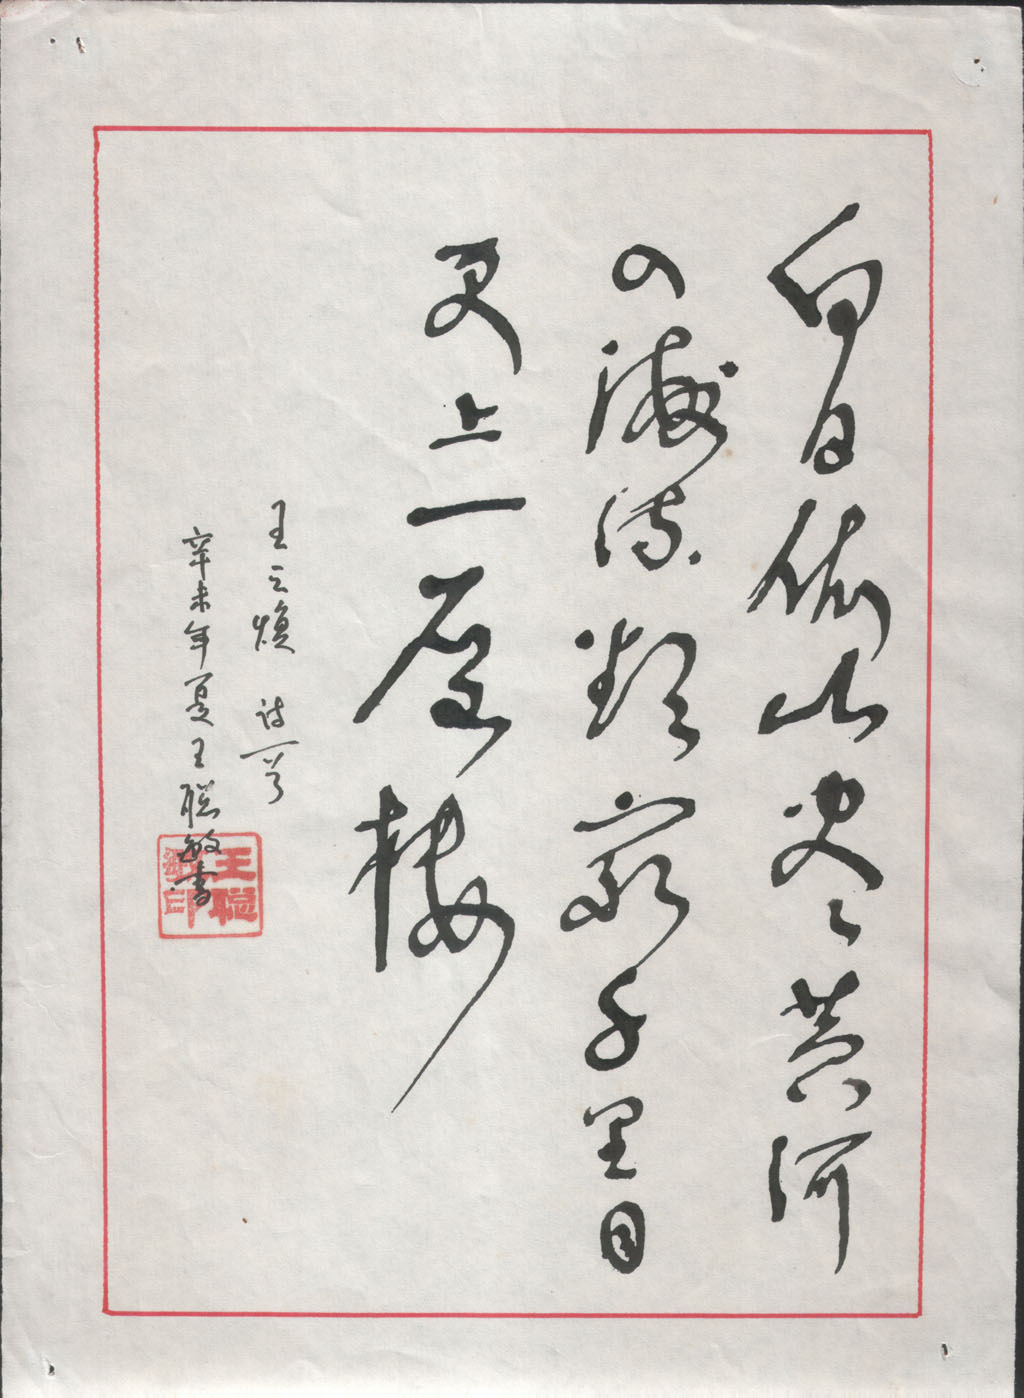 白日依山尽黄河
入海流欲穷千里目
更上一层楼
王之焕 诗一首
辛未年夏王聪敏书
王聪敏印